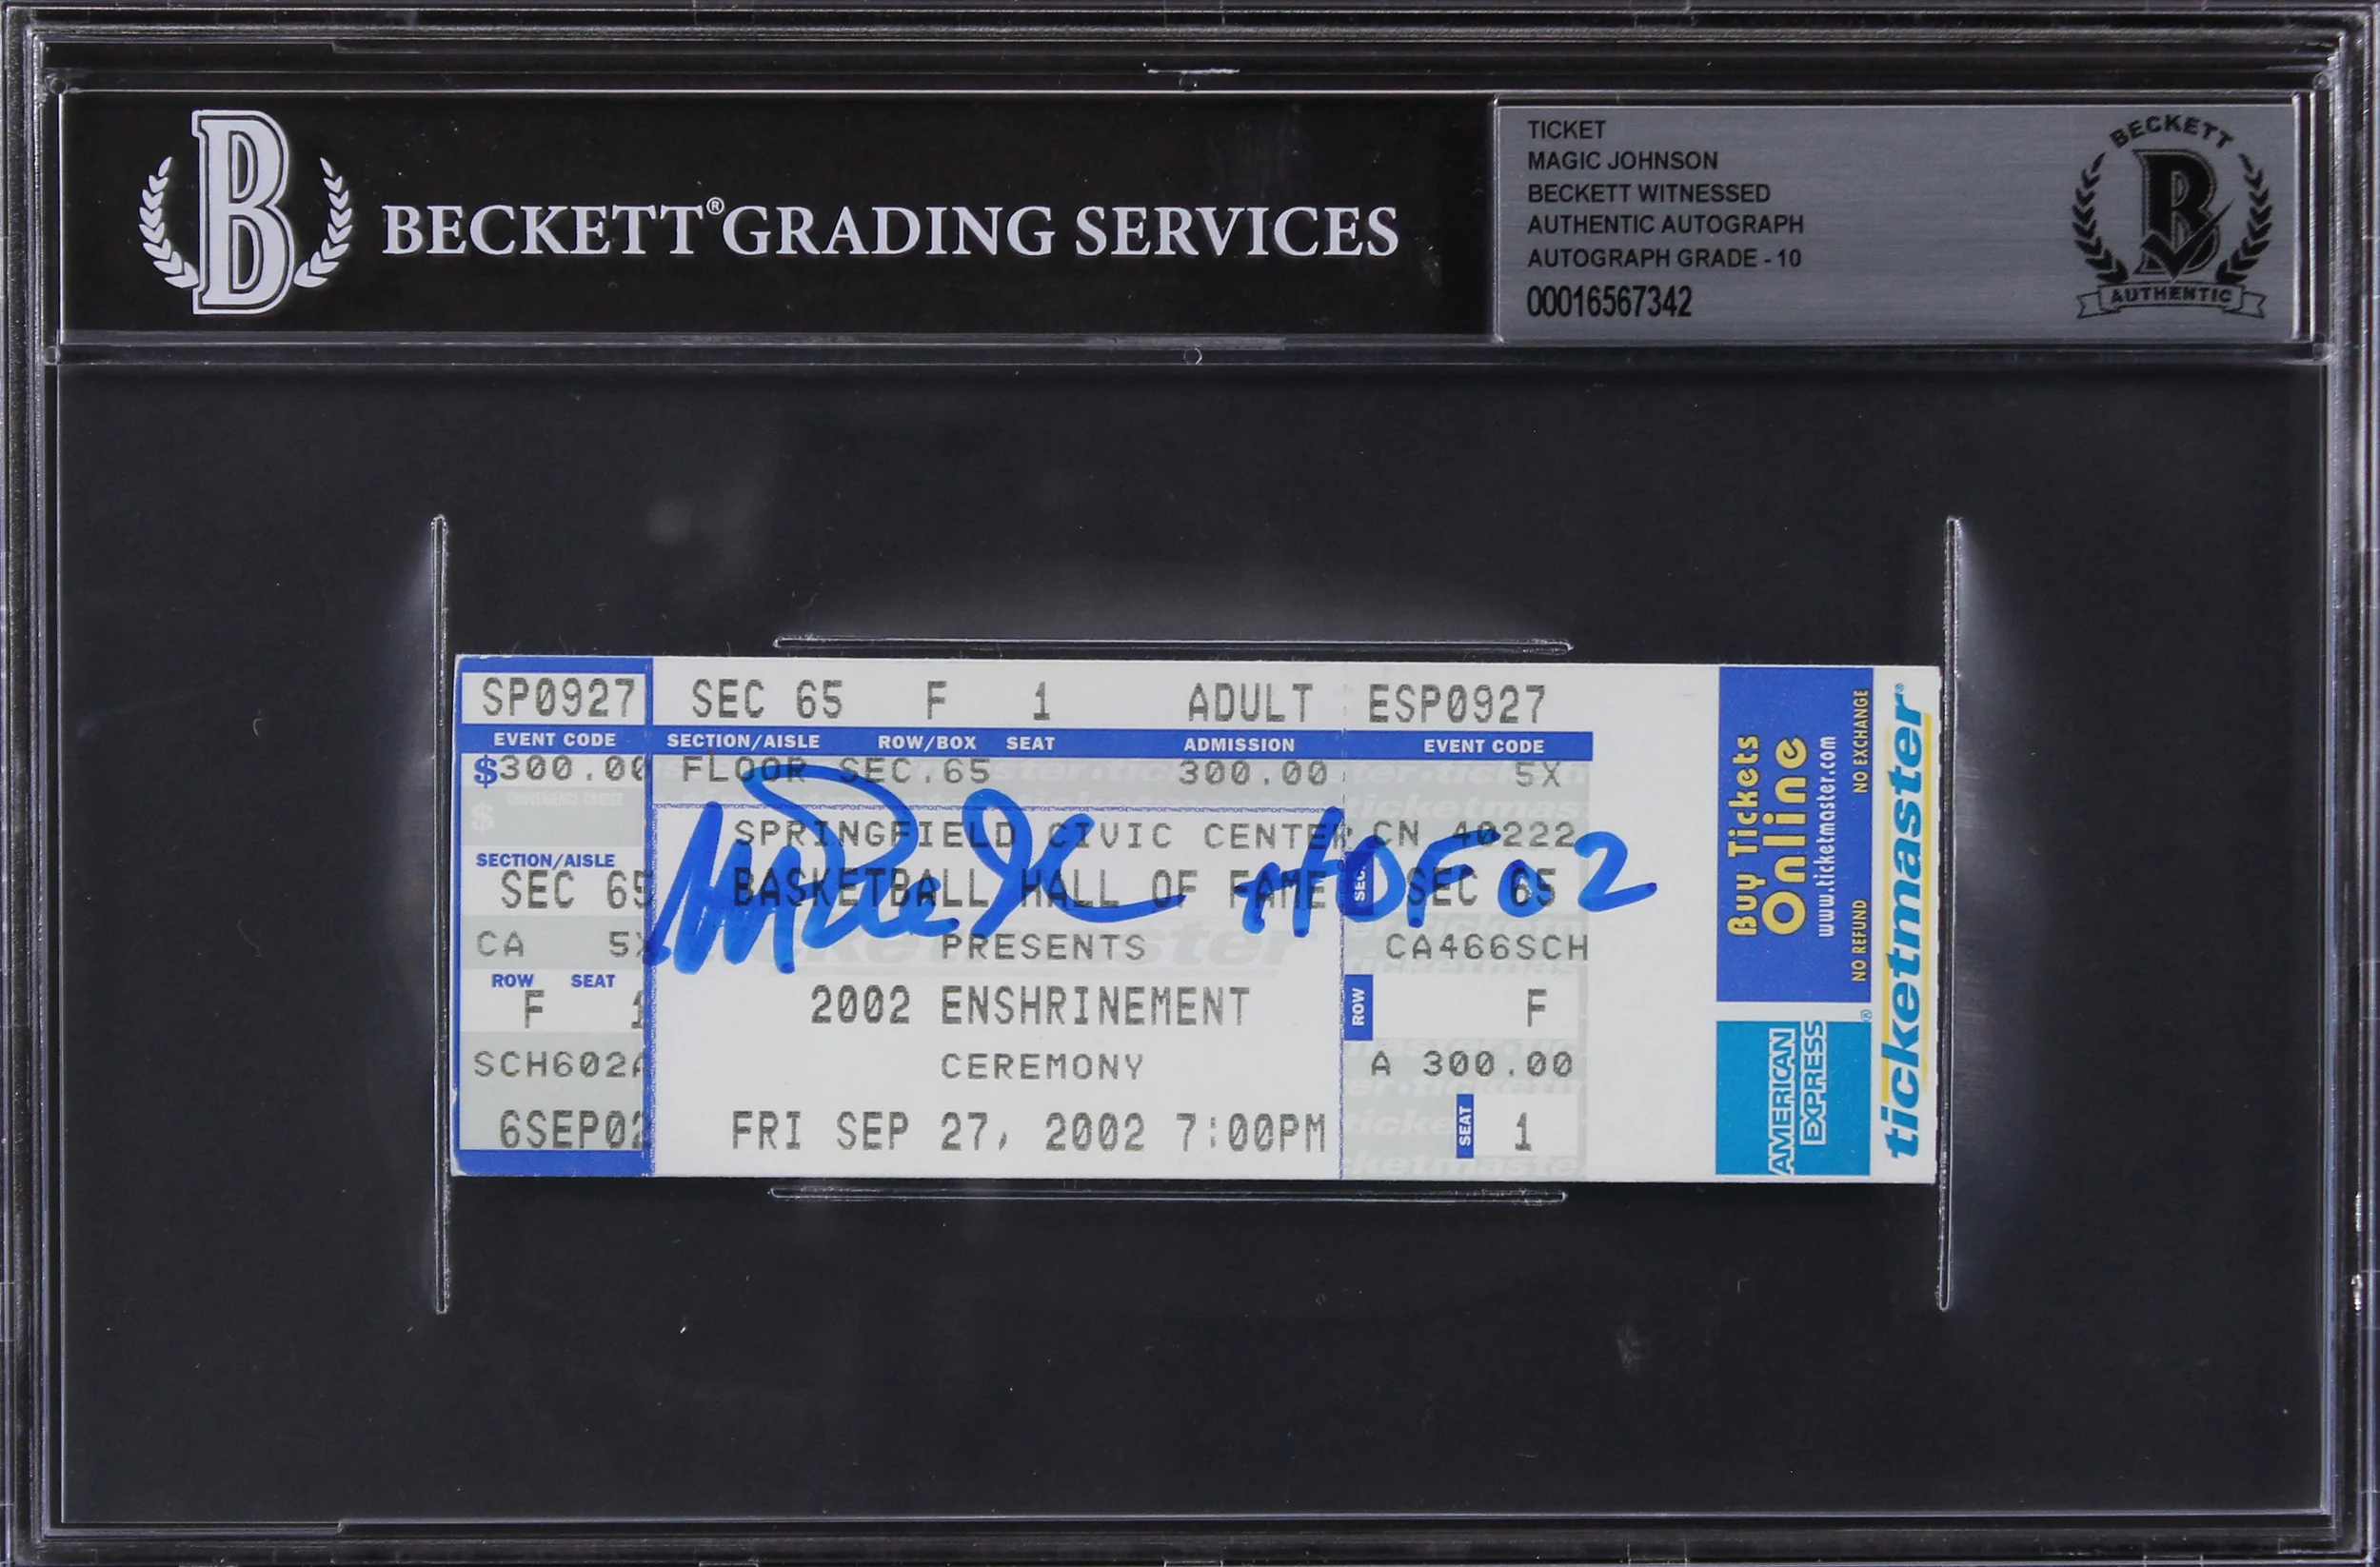 BECKETT® GRADING SERVICES
TICKET
MAGIC JOHNSON
BECKETT WITNESSED
AUTHENTIC AUTOGRAPH
AUTOGRAPH GRADE - 10
00016567342
BECKETT
B
AUTHENTIC
SP0927
EVENT CODE
$300.00
$ CONVENIENCE CHARGE
SECTION/AISLE
SEC 65
CA 5X
ROW SEAT
F 1
SCH602A
6SEP02
SEC 65 F 1 ADULT
SECTION/AISLE ROW/BOX SEAT ADMISSION
FLOOR SEC.65 300.00
SPRINGFIELD CIVIC CENTER
BASKETBALL HALL OF FAME
PRESENTS
2002 ENSHRINEMENT
CEREMONY
FRI SEP 27, 2002 7:00PM
HOF 02
ESP0927
EVENT CODE
5X
CN 40222
SEC. SEC 65
CA466SCH
ROW F
A 300.00
SEAT 1
Buy Tickets
Online
www.ticketmaster.com
NO REFUND NO EXCHANGE
AMERICAN
EXPRESS®
ticketmaster®